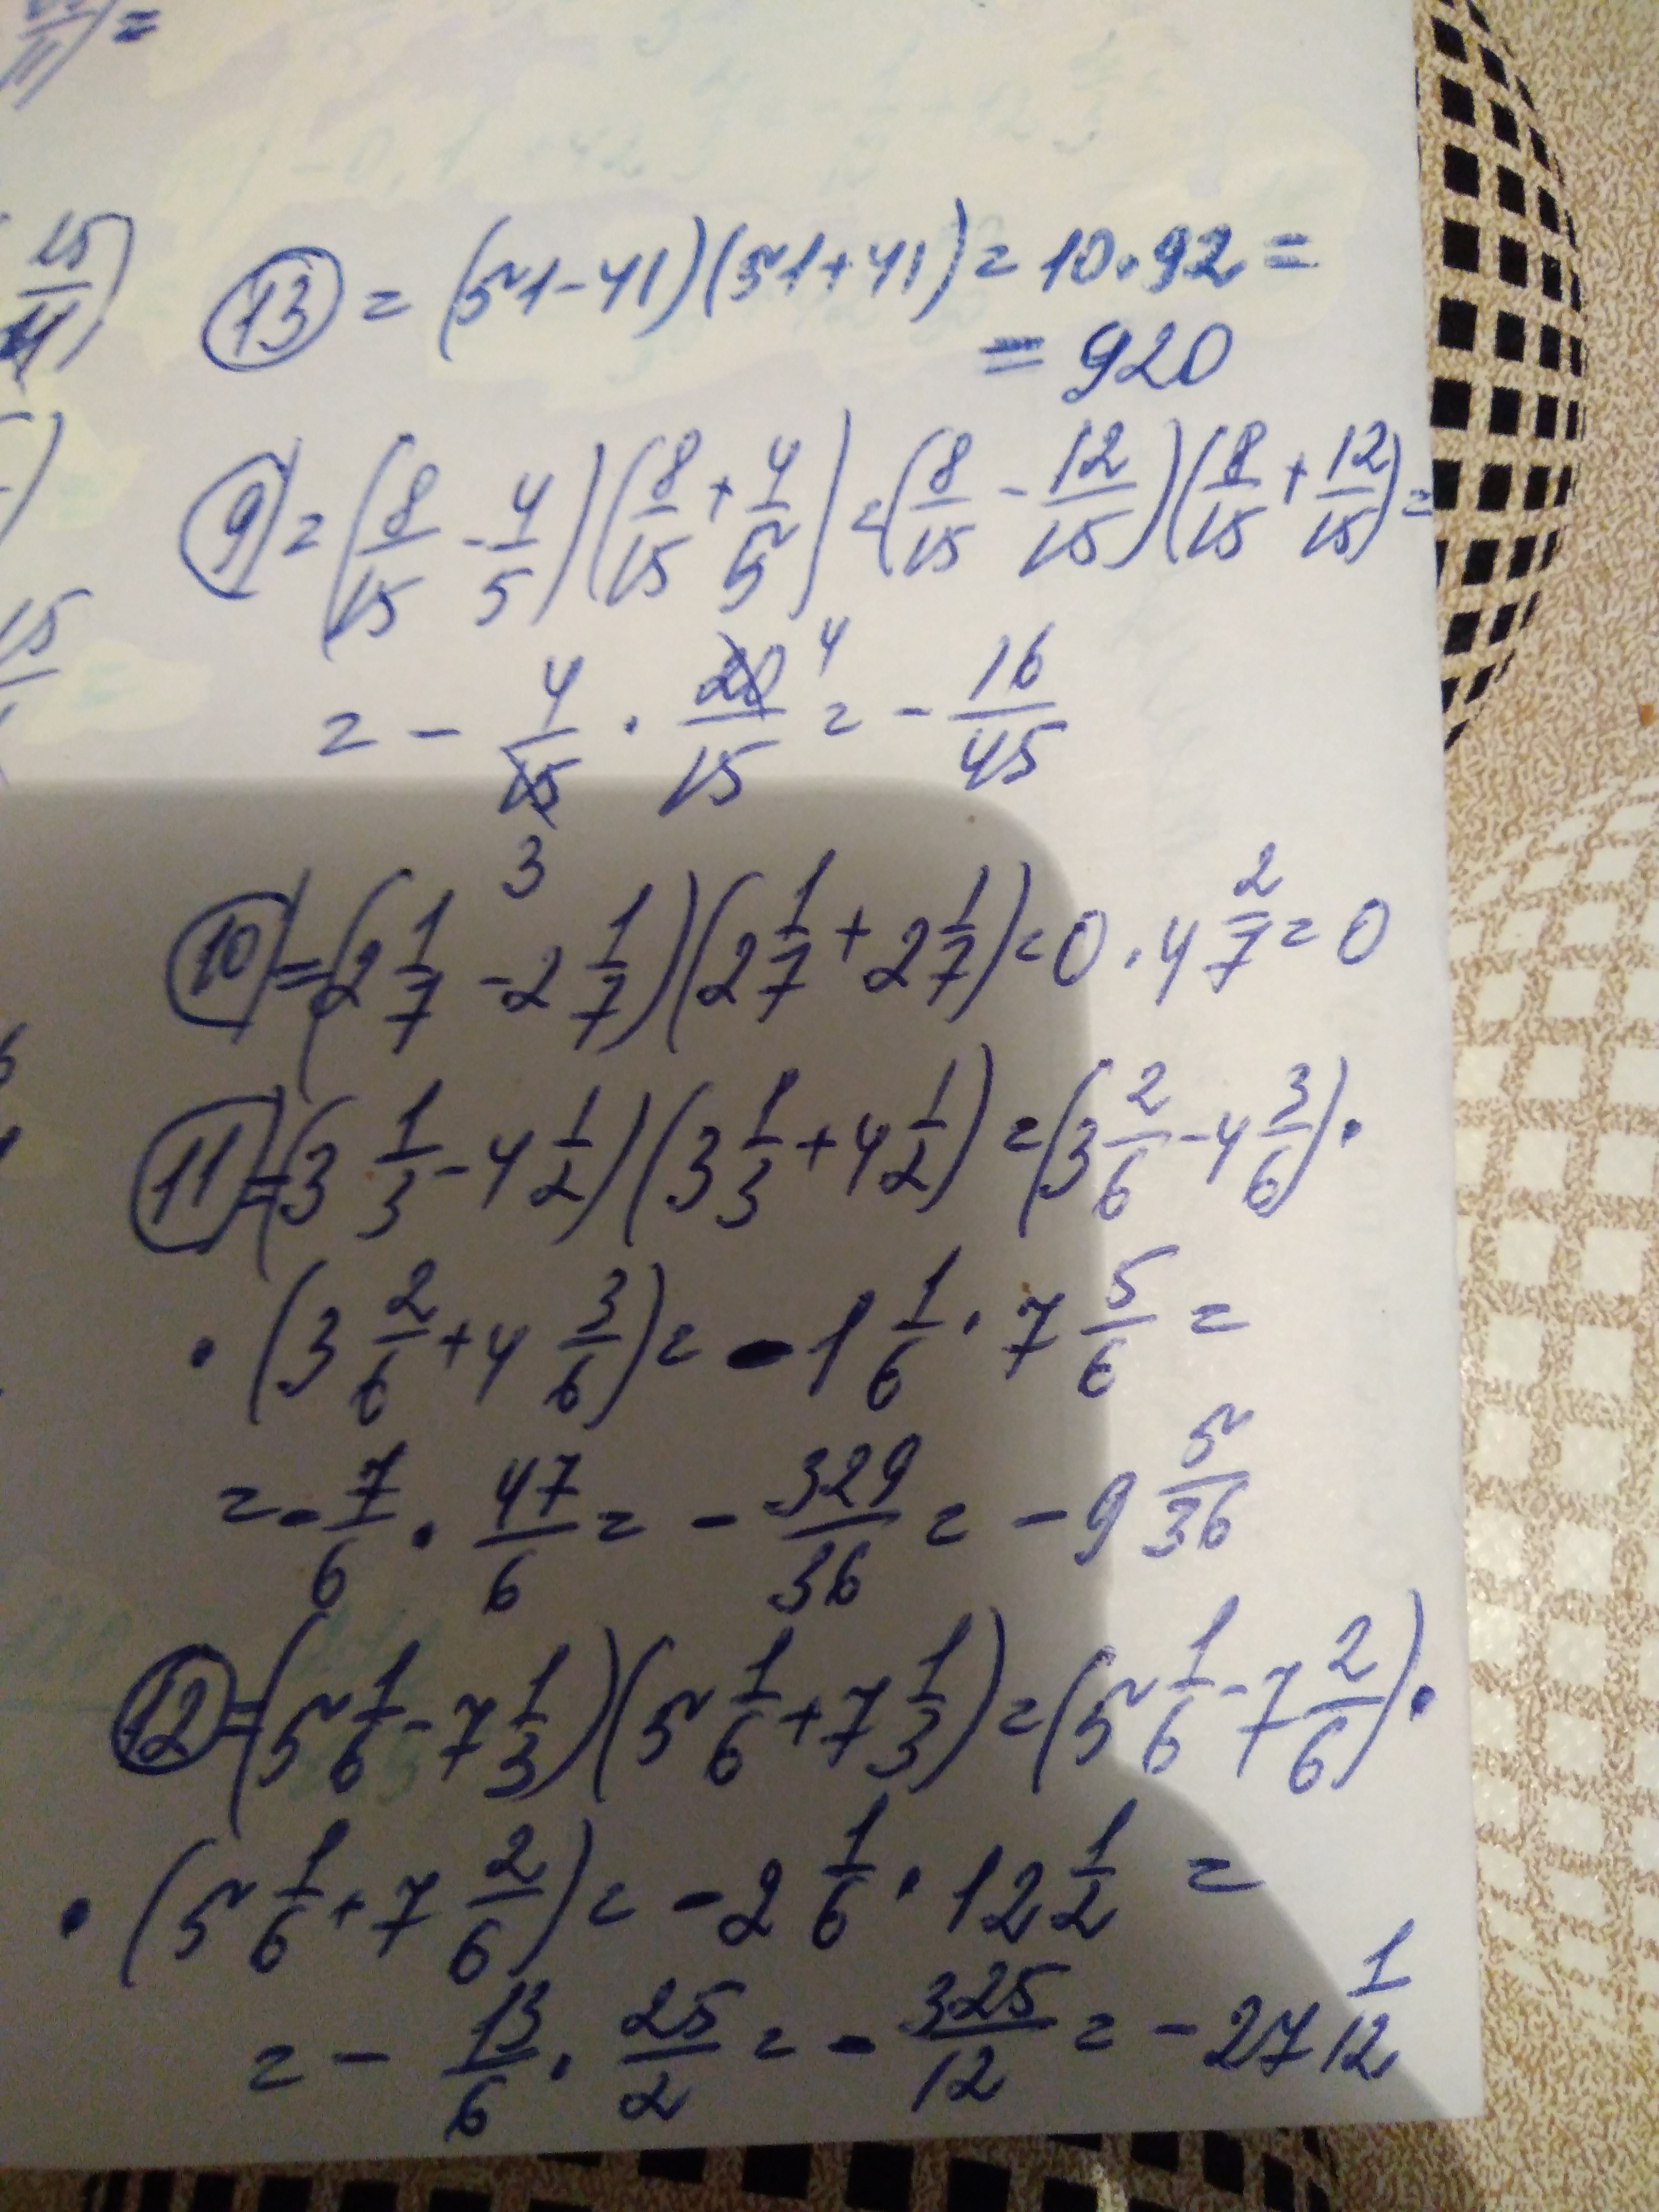 13 = (51-41)(51+41) = 10·92 =
= 920
9) = (8/15 - 4/5)(8/15 + 4/5) = (8/15 - 12/15)(8/15 + 12/15) =
= - 4/15 3 · 20/15 4 = - 16/45
10) = (2 1/7 - 2 1/7)(2 1/7 + 2 1/7) = 0 · 4 2/7 = 0
11) = (3 1/3 - 4 1/2)(3 1/3 + 4 1/2) = (3 2/6 - 4 3/6) ·
· (3 2/6 + 4 3/6) = - 1 1/6 · 7 5/6 =
= - 7/6 · 47/6 = - 329/36 = - 9 5/36
12) = (5 1/6 - 7 1/3)(5 1/6 + 7 1/3) = (5 1/6 - 7 2/6) ·
· (5 1/6 + 7 2/6) = - 2 1/6 · 12 1/2 =
= - 13/6 · 25/2 = - 325/12 = - 27 1/12